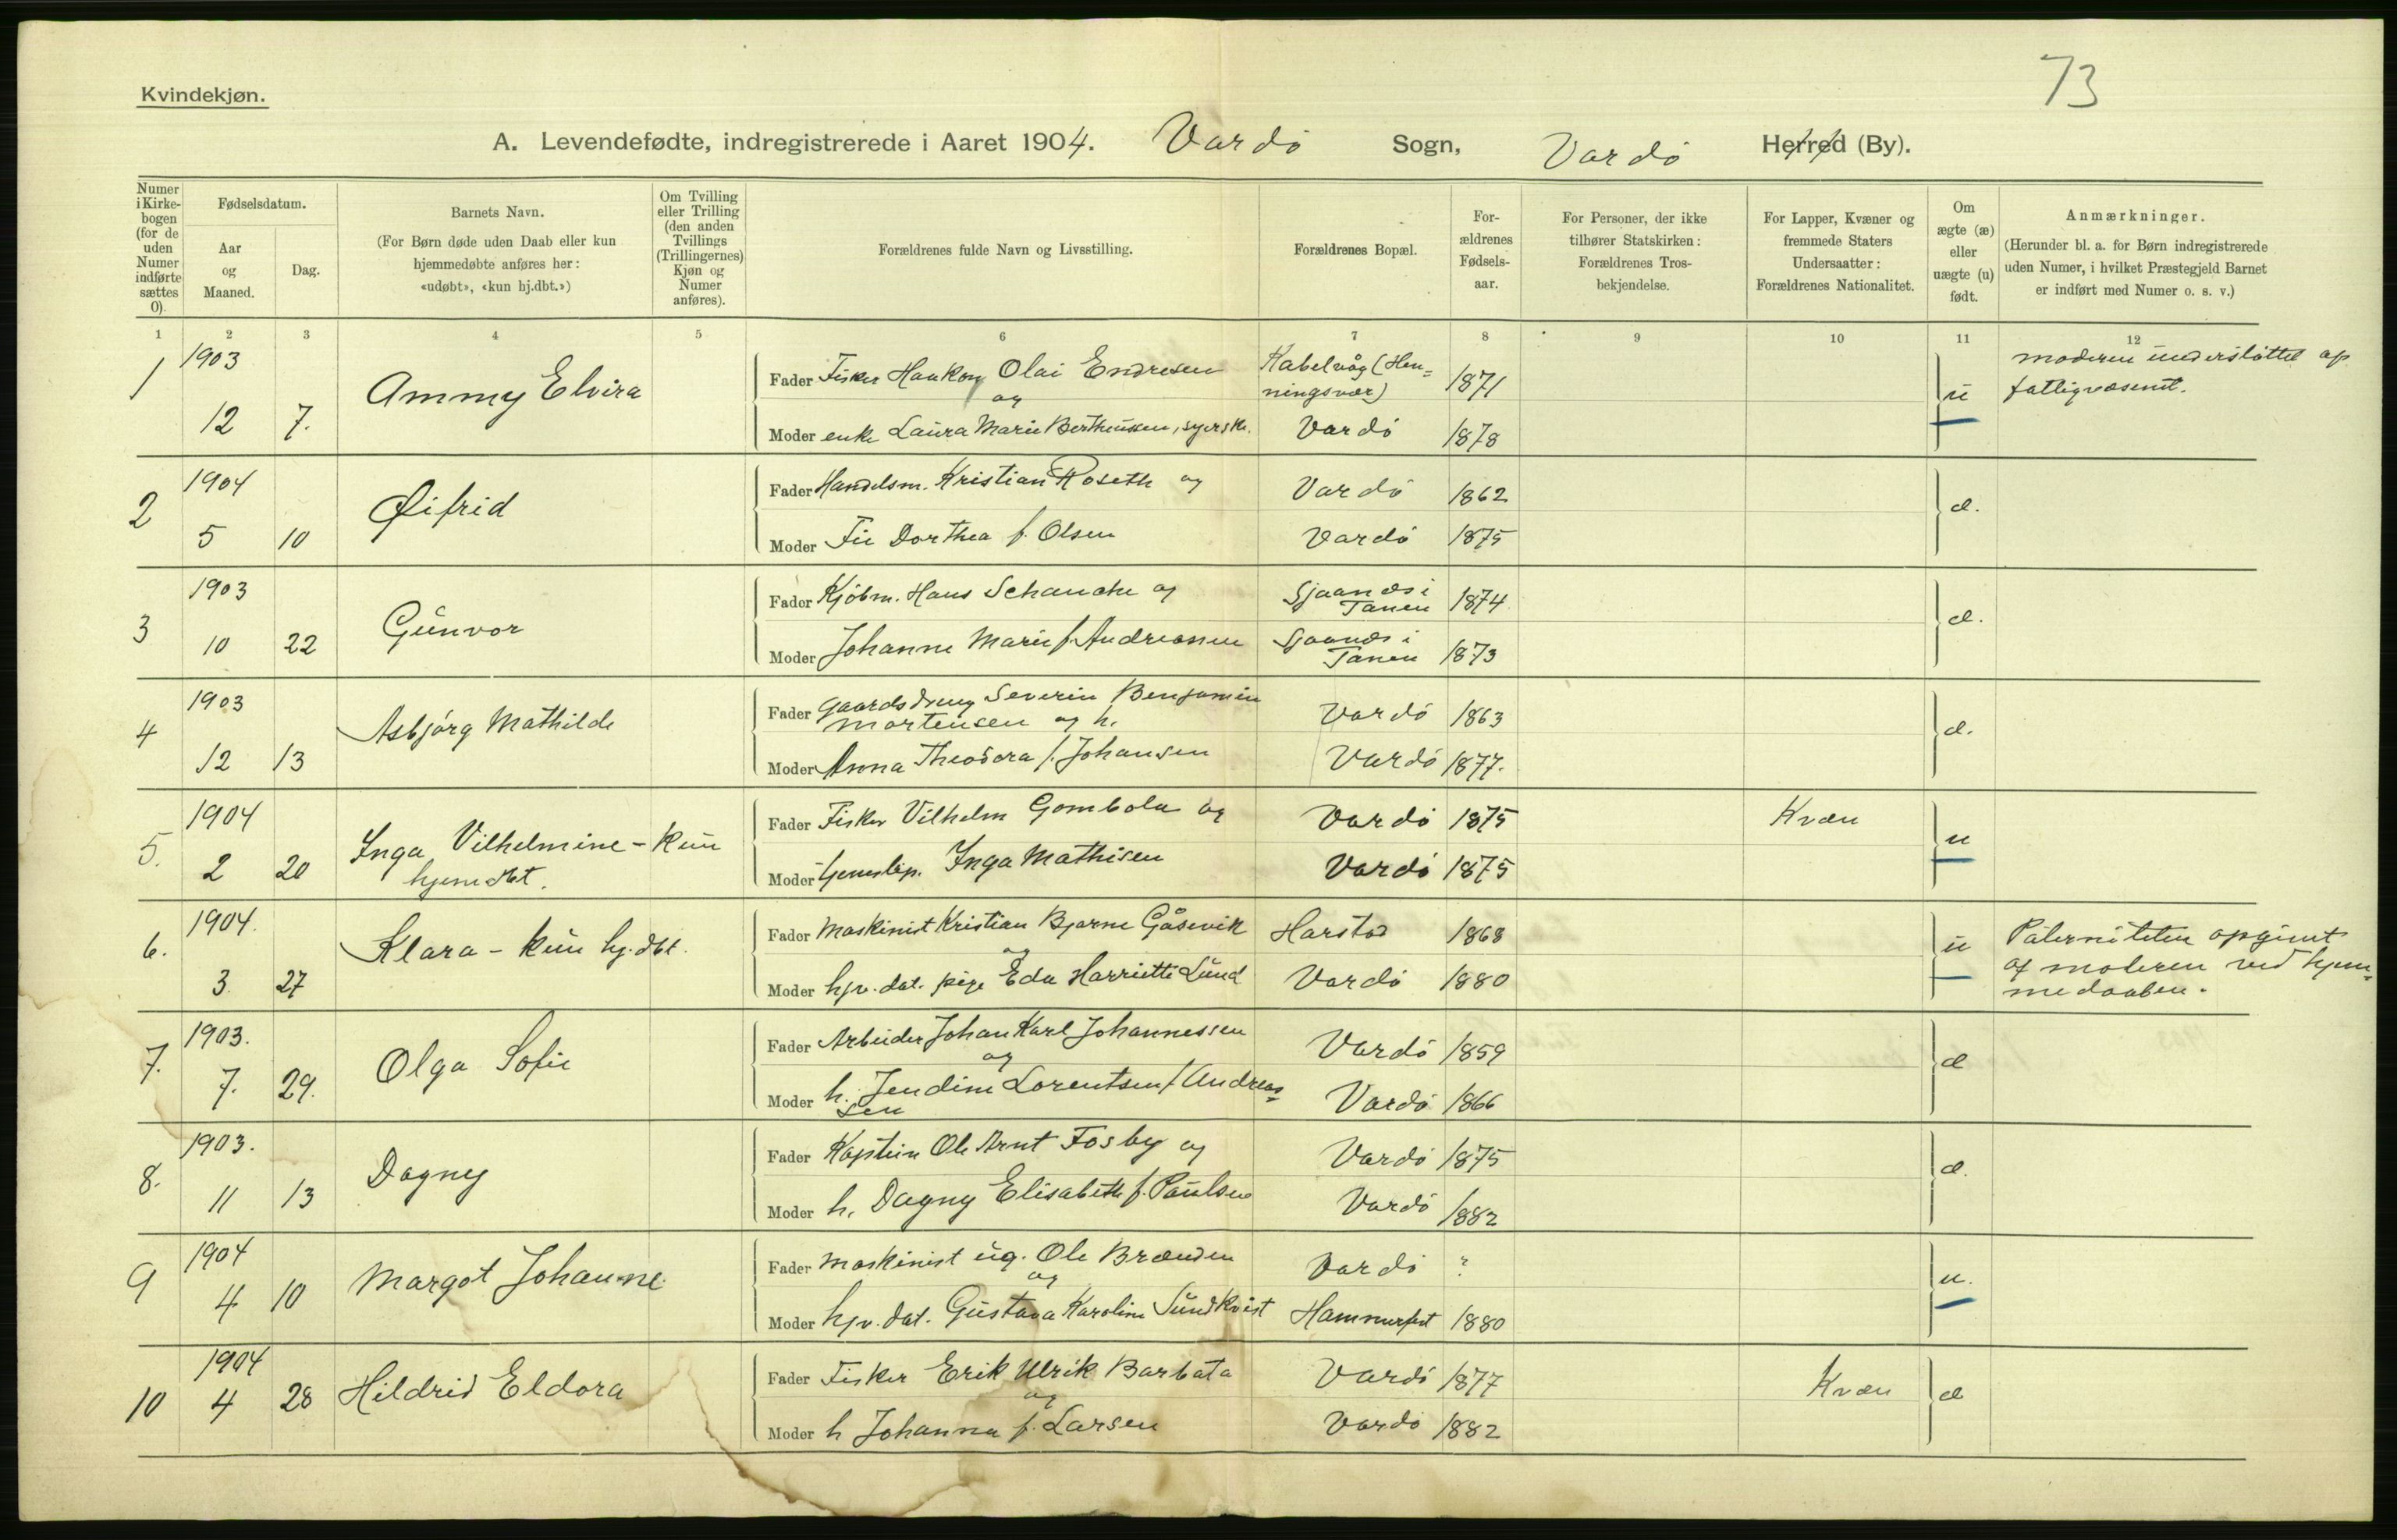 73
Kvindekjøn.
A. Levendefødte, indregistrerede i Aaret 1904. Vardö Sogn, Vardö Herred (By).
Numer i Kirkebogen (for de uden Numer indførte sættes 0).
Fødselsdatum.
Aar og Maaned.
Dag.
Barnets Navn.
(For Børn døde uden Daab eller kun hjemmedøbte anføres her: «udøbt», «kun hj.dbt.»)
Om Tvilling eller Trilling (den anden Tvillings (Trillingernes) Kjøn og Numer anføres).
Forældrenes fulde Navn og Livsstilling.
Forældrenes Bopæl.
Forældrenes Fødselsaar.
For Personer, der ikke tilhører Statskirken: Forældrenes Trosbekjendelse.
For Lapper, Kvæner og fremmede Staters Undersaatter: Forældrenes Nationalitet.
Om ægte (æ) eller uægte (u) født.
Anmærkninger.
(Herunder bl. a. for Børn indregistrerede uden Numer, i hvilket Præstegjeld Barnet er indført med Numer o. s. v.)
1 2 3 4 5 6 7 8 9 10 11 12
1 1903 12 7. Ammy Elvira
Fader Fisker Haakon Olai Endresen og Kabelvåg (Henningsvær) 1871
Moder enke Laura Marie Bertheussen, syerske. Vardö 1878
u moderen understöttet af fattigvæsenet.
2 1904 5 10 Øifrid
Fader Handelsm. Kristian Roseth og Vardö 1862
Moder Fie Dorthea f. Olsen Vardö 1875
æ.
3 1903 10 22 Gunvor
Fader Kjöbm. Hans Schanche og Sjaanæs i Tanen 1874
Moder Johanne Marie f. Andreassen Sjaanæs i Tanen 1873
æ.
4 1903 12 13 Asbjörg Mathilde
Fader Gaardsdreng Severin Benjamin Mortensen og h. Vardö 1863
Moder Anna Theodora f. Johansen Vardö 1877.
æ.
5. 1904 2 20 Inga Vilhelmine - kun hjemdbt.
Fader Fisker Vilhelm Gombola og Vardö 1875 Kvæn
Moder tjenestep. Inga Mathisen Vardö 1875
u
6. 1904. 3. 27 Klara - kun hj.dbt.
Fader Maskinist Kristian Bjarne Gåsevik og Harstad 1868
Moder hjv. dat. pige Eda Harriette Lund Vardö 1880
u Paterniteten opgivet af moderen ved hjemmedaaben.
7. 1903. 7. 29. Olga Sofie
Fader Arbeider Johan Karl Johannessen og Vardö 1859
Moder h. Jendine Lorentsen f. Andreassen Vardö 1866
æ
8. 1903. 11 13 Dagny
Fader Kaptein Ole Arnt Fosby og Vardö 1875
Moder h. Dagny Elisabeth f. Paulsen Vardö 1882
æ.
9 1904 4 10 Margot Johanne
Fader Maskinist ug. Ole Brænden og Vardö ?
Moder hjv. dat. Gustava Karoline Sundkvist Hammerfest 1880
u.
10 1904 4 28 Hildrid Eldora
Fader Fisker Erik Ulrik Barbata og Vardö 1877 Kvæn
Moder h Johanna f. Larsen Vardö 1882
æ